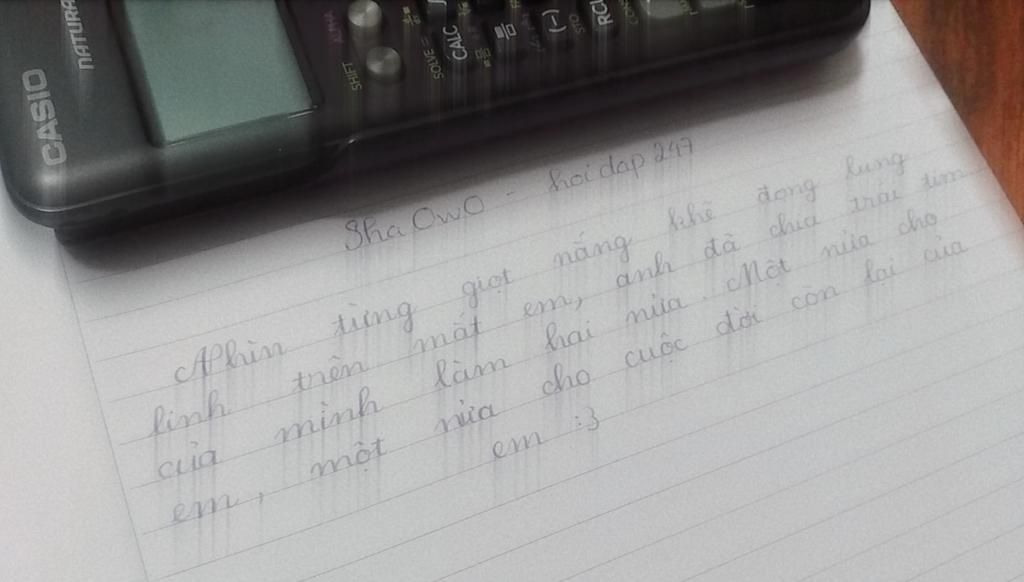 CASIO
NATURA
SHIFT
ALPHA
SOLVE =
CALC
(-)
STO
RCL
Sha OwO - hoidap247
Nhìn từng giọt nắng khẽ đọng lung
linh trên mắt em, anh đã chia trái tim
của mình làm hai nửa. Một nửa cho
em, một nửa cho cuộc đời còn lại của
em :3